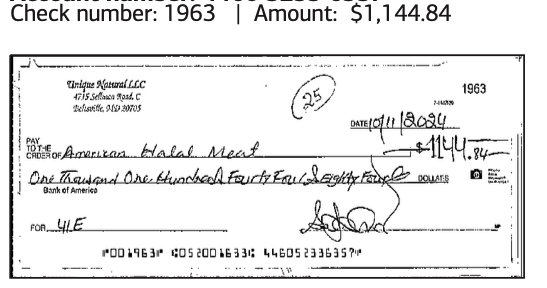 Check number: 1963 | Amount: $1,144.84
Unique Natural LLC
4735 Sellman Road, C
Beltsville, MD 20705
25
1963
DATE 10/11/2024
PAY
TO THE
ORDER OF American Halal Meat $ 1144.84
One Thousand One Hundred Fourty Four & Eighty Four DOLLARS
Bank of America
FOR 41E
⑈001963⑈ ⑆052001633⑆ 446052336357⑈